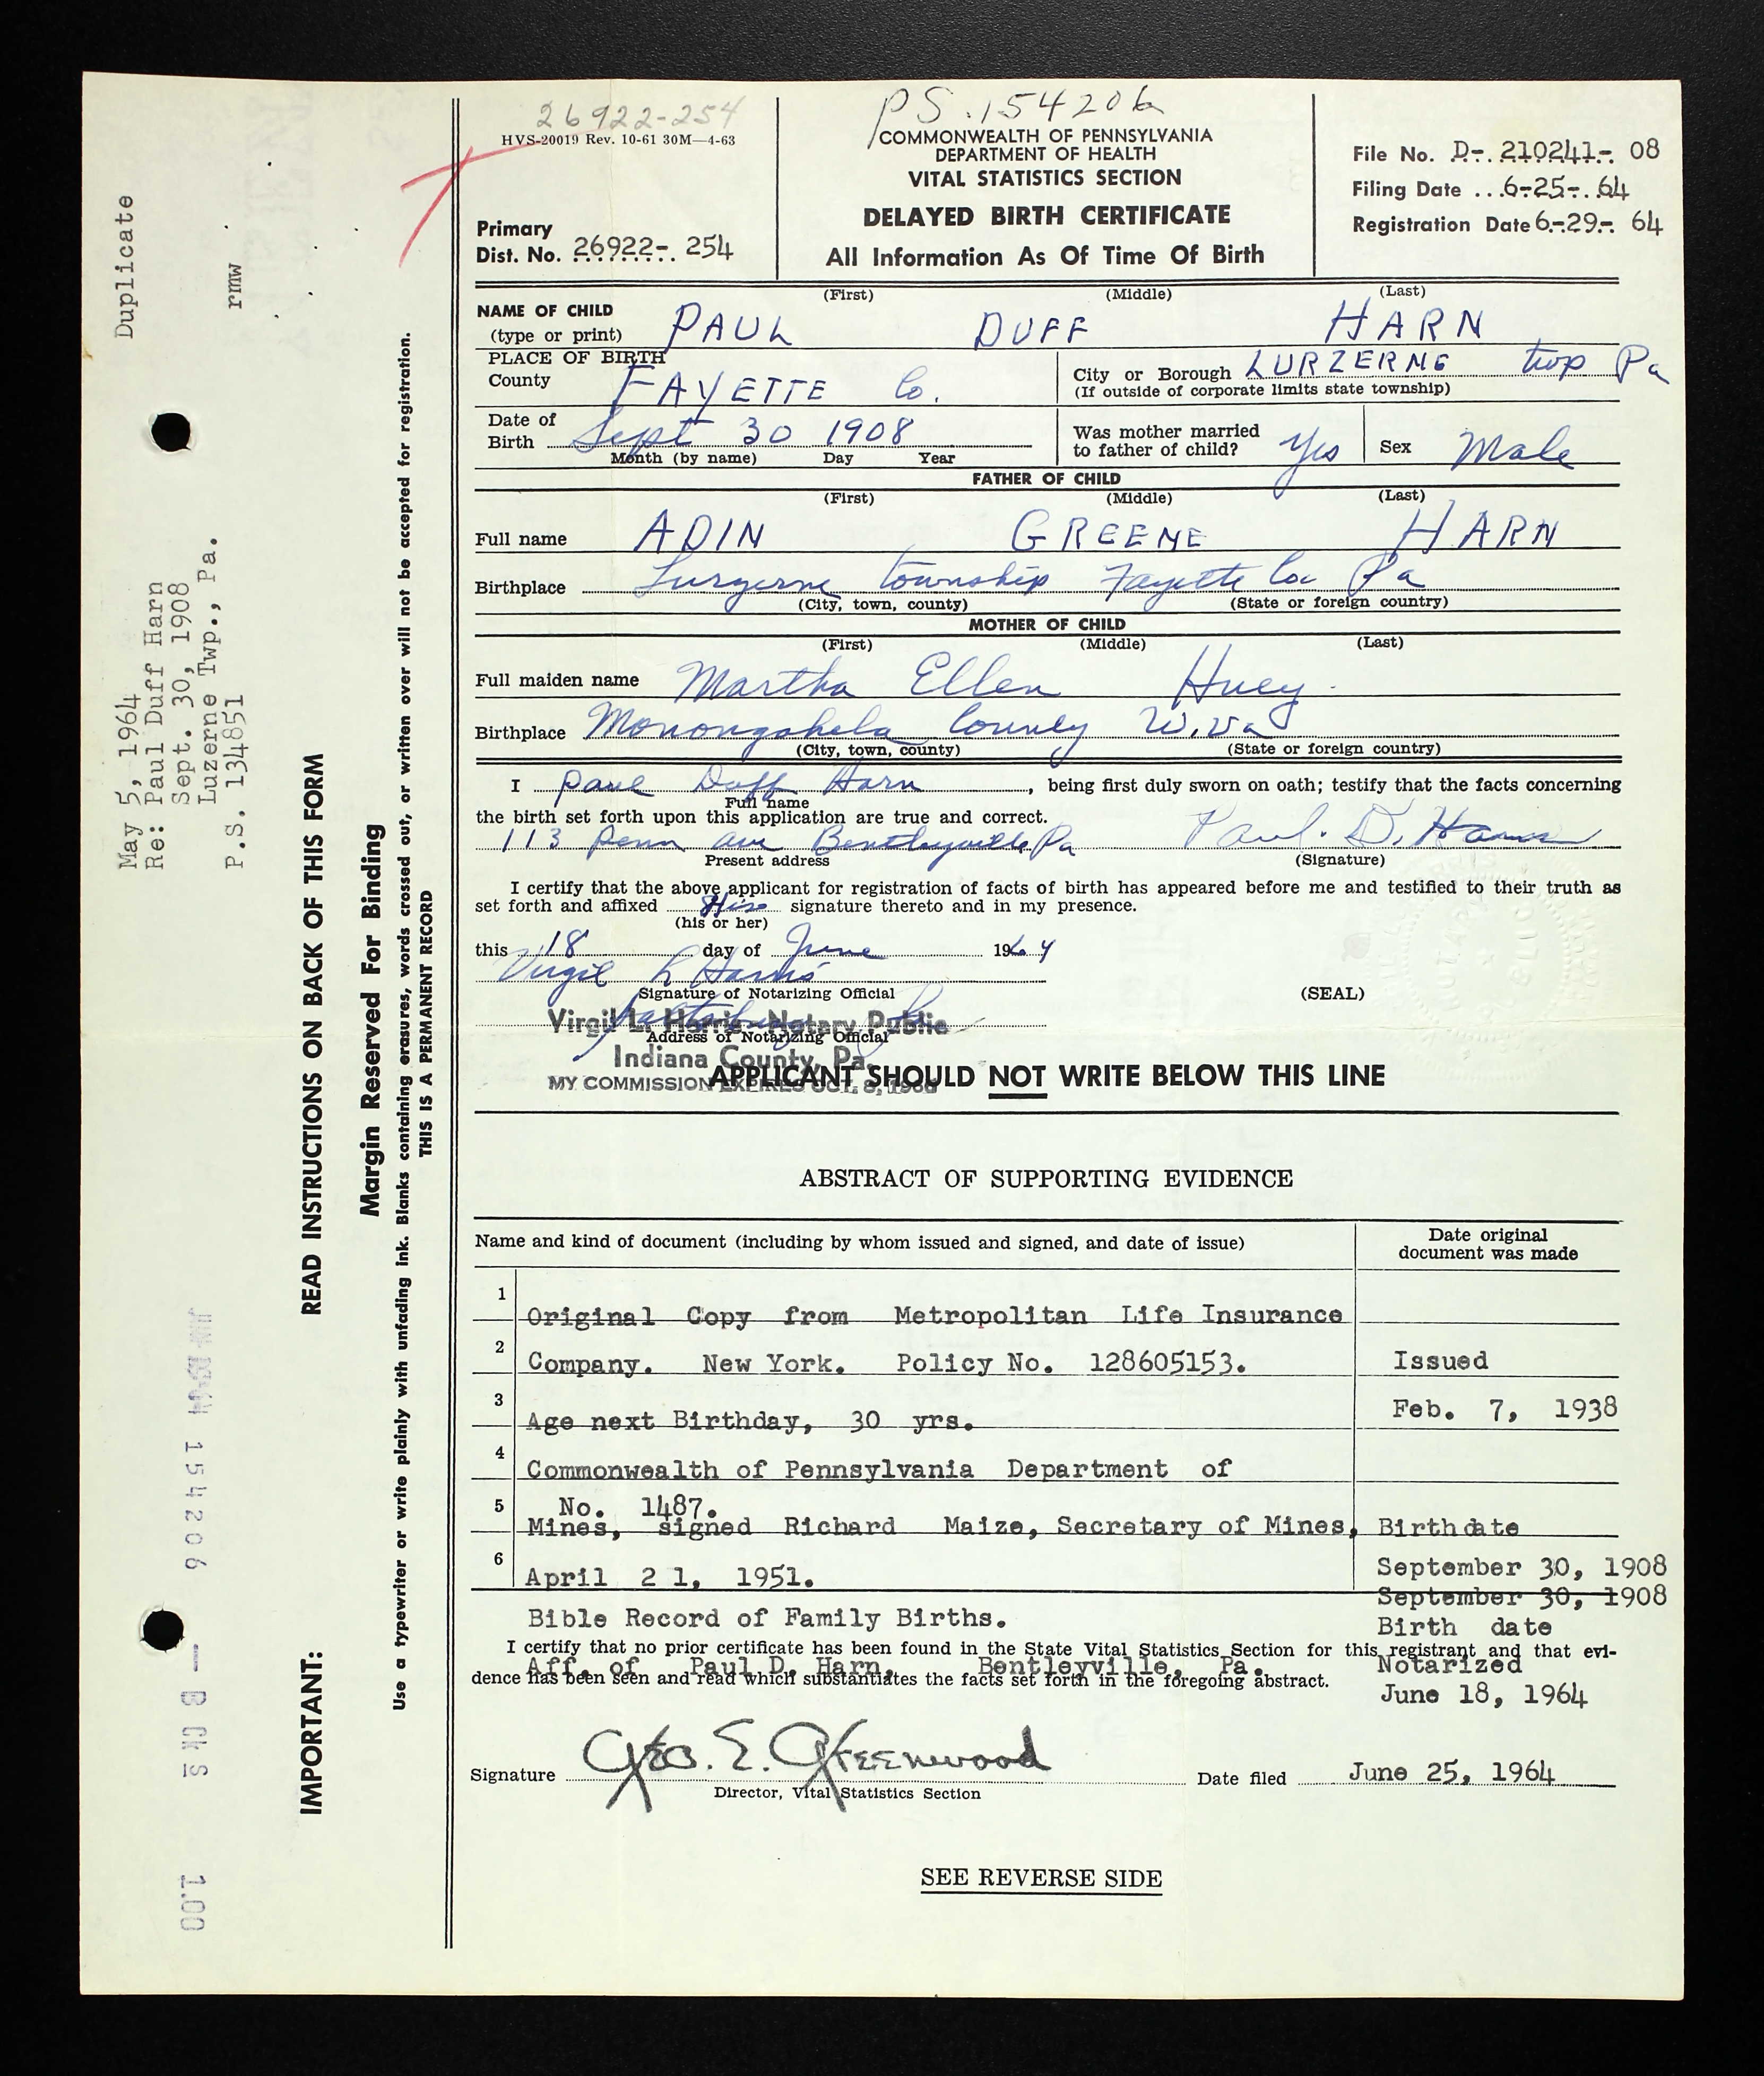 26922-254
HVS-20019 Rev. 10-61 30M—4-63
Primary
Dist. No. 26922- 254
PS.154206
COMMONWEALTH OF PENNSYLVANIA
DEPARTMENT OF HEALTH
VITAL STATISTICS SECTION
DELAYED BIRTH CERTIFICATE
All Information As Of Time Of Birth
File No. D-. 210241-. 08
Filing Date ...6-25-. 64
Registration Date 6-29-. 64
(First) (Middle) (Last)
NAME OF CHILD
(type or print) PAUL DUFF HARN
PLACE OF BIRTH
County FAYETTE Co.
City or Borough LURZERNE twp Pa
(If outside of corporate limits state township)
Date of
Birth Sept 30 1908
Month (by name) Day Year
Was mother married
to father of child? Yes
Sex Male
FATHER OF CHILD
(First) (Middle) (Last)
Full name ADIN GREENE HARN
Birthplace Lurzerne township Fayette Co Pa
(City, town, county) (State or foreign country)
MOTHER OF CHILD
(First) (Middle) (Last)
Full maiden name Martha Ellen Huey
Birthplace Monongahela County W.Va
(City, town, county) (State or foreign country)
I Paul Duff Harn, being first duly sworn on oath; testify that the facts concerning
Full name
the birth set forth upon this application are true and correct.
113 Penn ave Bentleyville Pa Paul. D. Harn
Present address (Signature)
I certify that the above applicant for registration of facts of birth has appeared before me and testified to their truth as
set forth and affixed His signature thereto and in my presence.
(his or her)
this 18 day of June 1964
Virgil L Harris
Signature of Notarizing Official
(SEAL)
Virgil L. Harris Notary Public
Address of Notarizing Official
Indiana County, Pa.
MY COMMISSION EXPIRES OCT. 8, 1966
APPLICANT SHOULD NOT WRITE BELOW THIS LINE
ABSTRACT OF SUPPORTING EVIDENCE
Name and kind of document (including by whom issued and signed, and date of issue)
Date original
document was made
1 Original Copy from Metropolitan Life Insurance
2 Company. New York. Policy No. 128605153. Issued
3 Age next Birthday, 30 yrs. Feb. 7, 1938
4 Commonwealth of Pennsylvania Department of
5 No. 1487.
Mines, signed Richard Maize, Secretary of Mines, Birthdate
6 April 21, 1951. September 30, 1908
September 30, 1908
Bible Record of Family Births. Birth date
I certify that no prior certificate has been found in the State Vital Statistics Section for this registrant and that evi-
Aff. of Paul D. Harn, Bentleyville, Pa. Notarized
dence has been seen and read which substantiates the facts set forth in the foregoing abstract.
June 18, 1964
Signature Geo. E. Greenwood Date filed June 25, 1964
Director, Vital Statistics Section
SEE REVERSE SIDE
Duplicate
rmw
May 5, 1964
Re: Paul Duff Harn
Sept. 30, 1908
Luzerne Twp., Pa.
P.S. 134851
154206 — B CK S 1.00
IMPORTANT: READ INSTRUCTIONS ON BACK OF THIS FORM
Margin Reserved For Binding
Use a typewriter or write plainly with unfading ink. Blanks containing erasures, words crossed out, or written over will not be accepted for registration.
THIS IS A PERMANENT RECORD